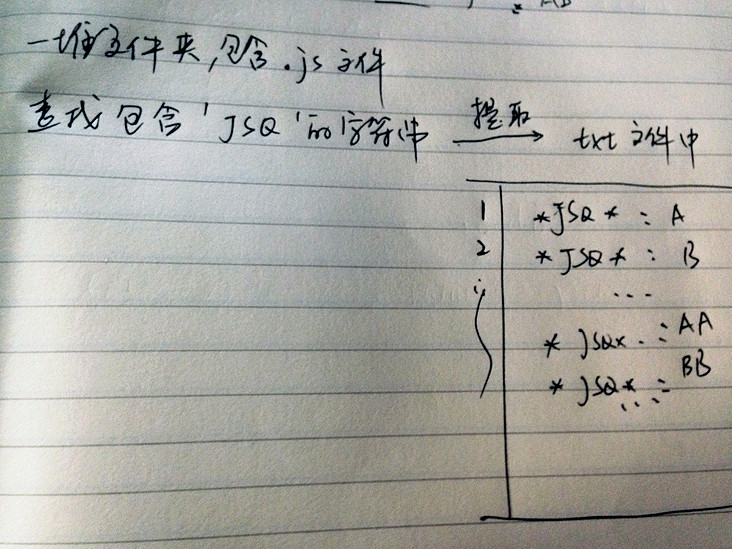 一堆文件夹,包含.js文件
查找包含'JSQ'的字符串 提取 txt文件中
1 *JSQ* : A
2 *JSQ* : B
...
*JSQ* : AA
*JSQ* : BB
...